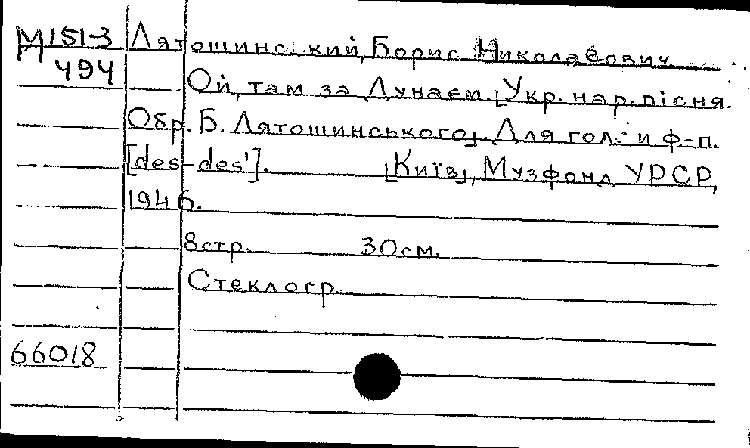 М151-3 Лятошинский, Борис Николаевич
494
Ой, там за Дунаєм. [Укр. нар. пісня.
Обр. Б. Лятошинського]. Для гол. и ф-п.
[des-des']. [Київ], Музфонд УРСР,
1946.
8 стр. 30 см.
Стеклогр.
66018